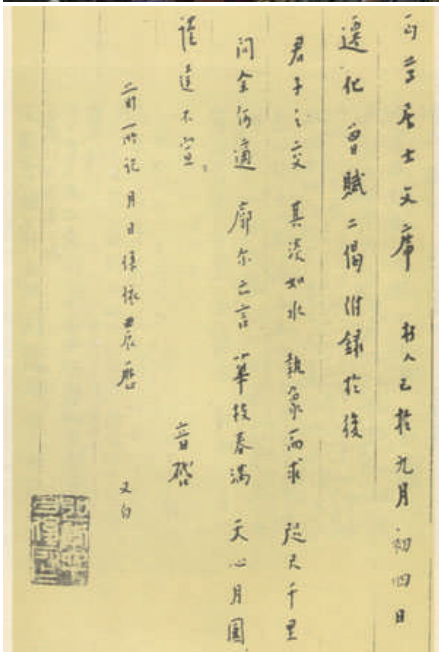 丏尊居士文席 朽人已於九月初四日
遷化 曾賦二偈 附錄於後
君子之交 其淡如水 執象而求 咫尺千里
問余何適 廓尔亡言 華枝春滿 天心月圓
謹達不宣
音啓
前所記月日係依農曆 又白